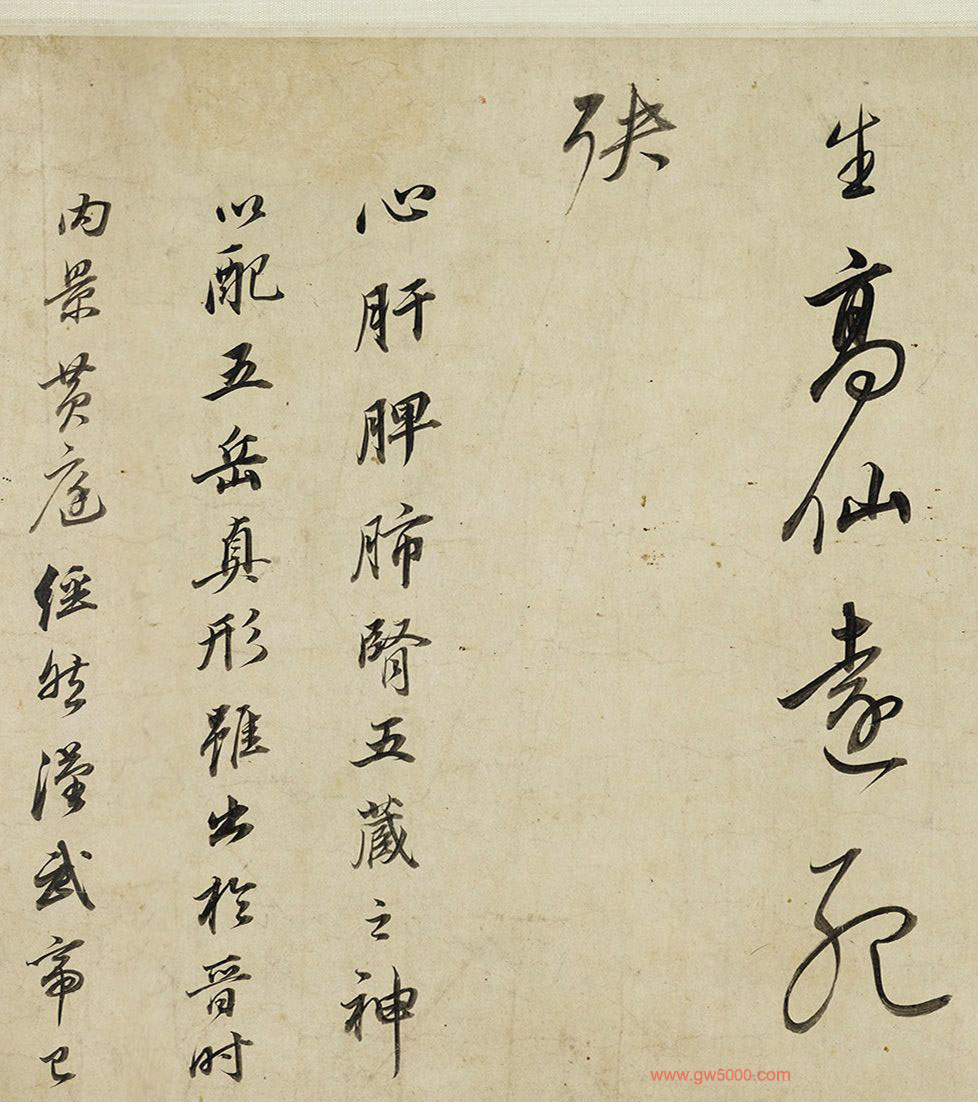 生高仙遠死
殃
心肝脾肺腎五藏之神
以配五岳真形雖出於晉时
内景黄庭経然漢武帝已
www.gw5000.com